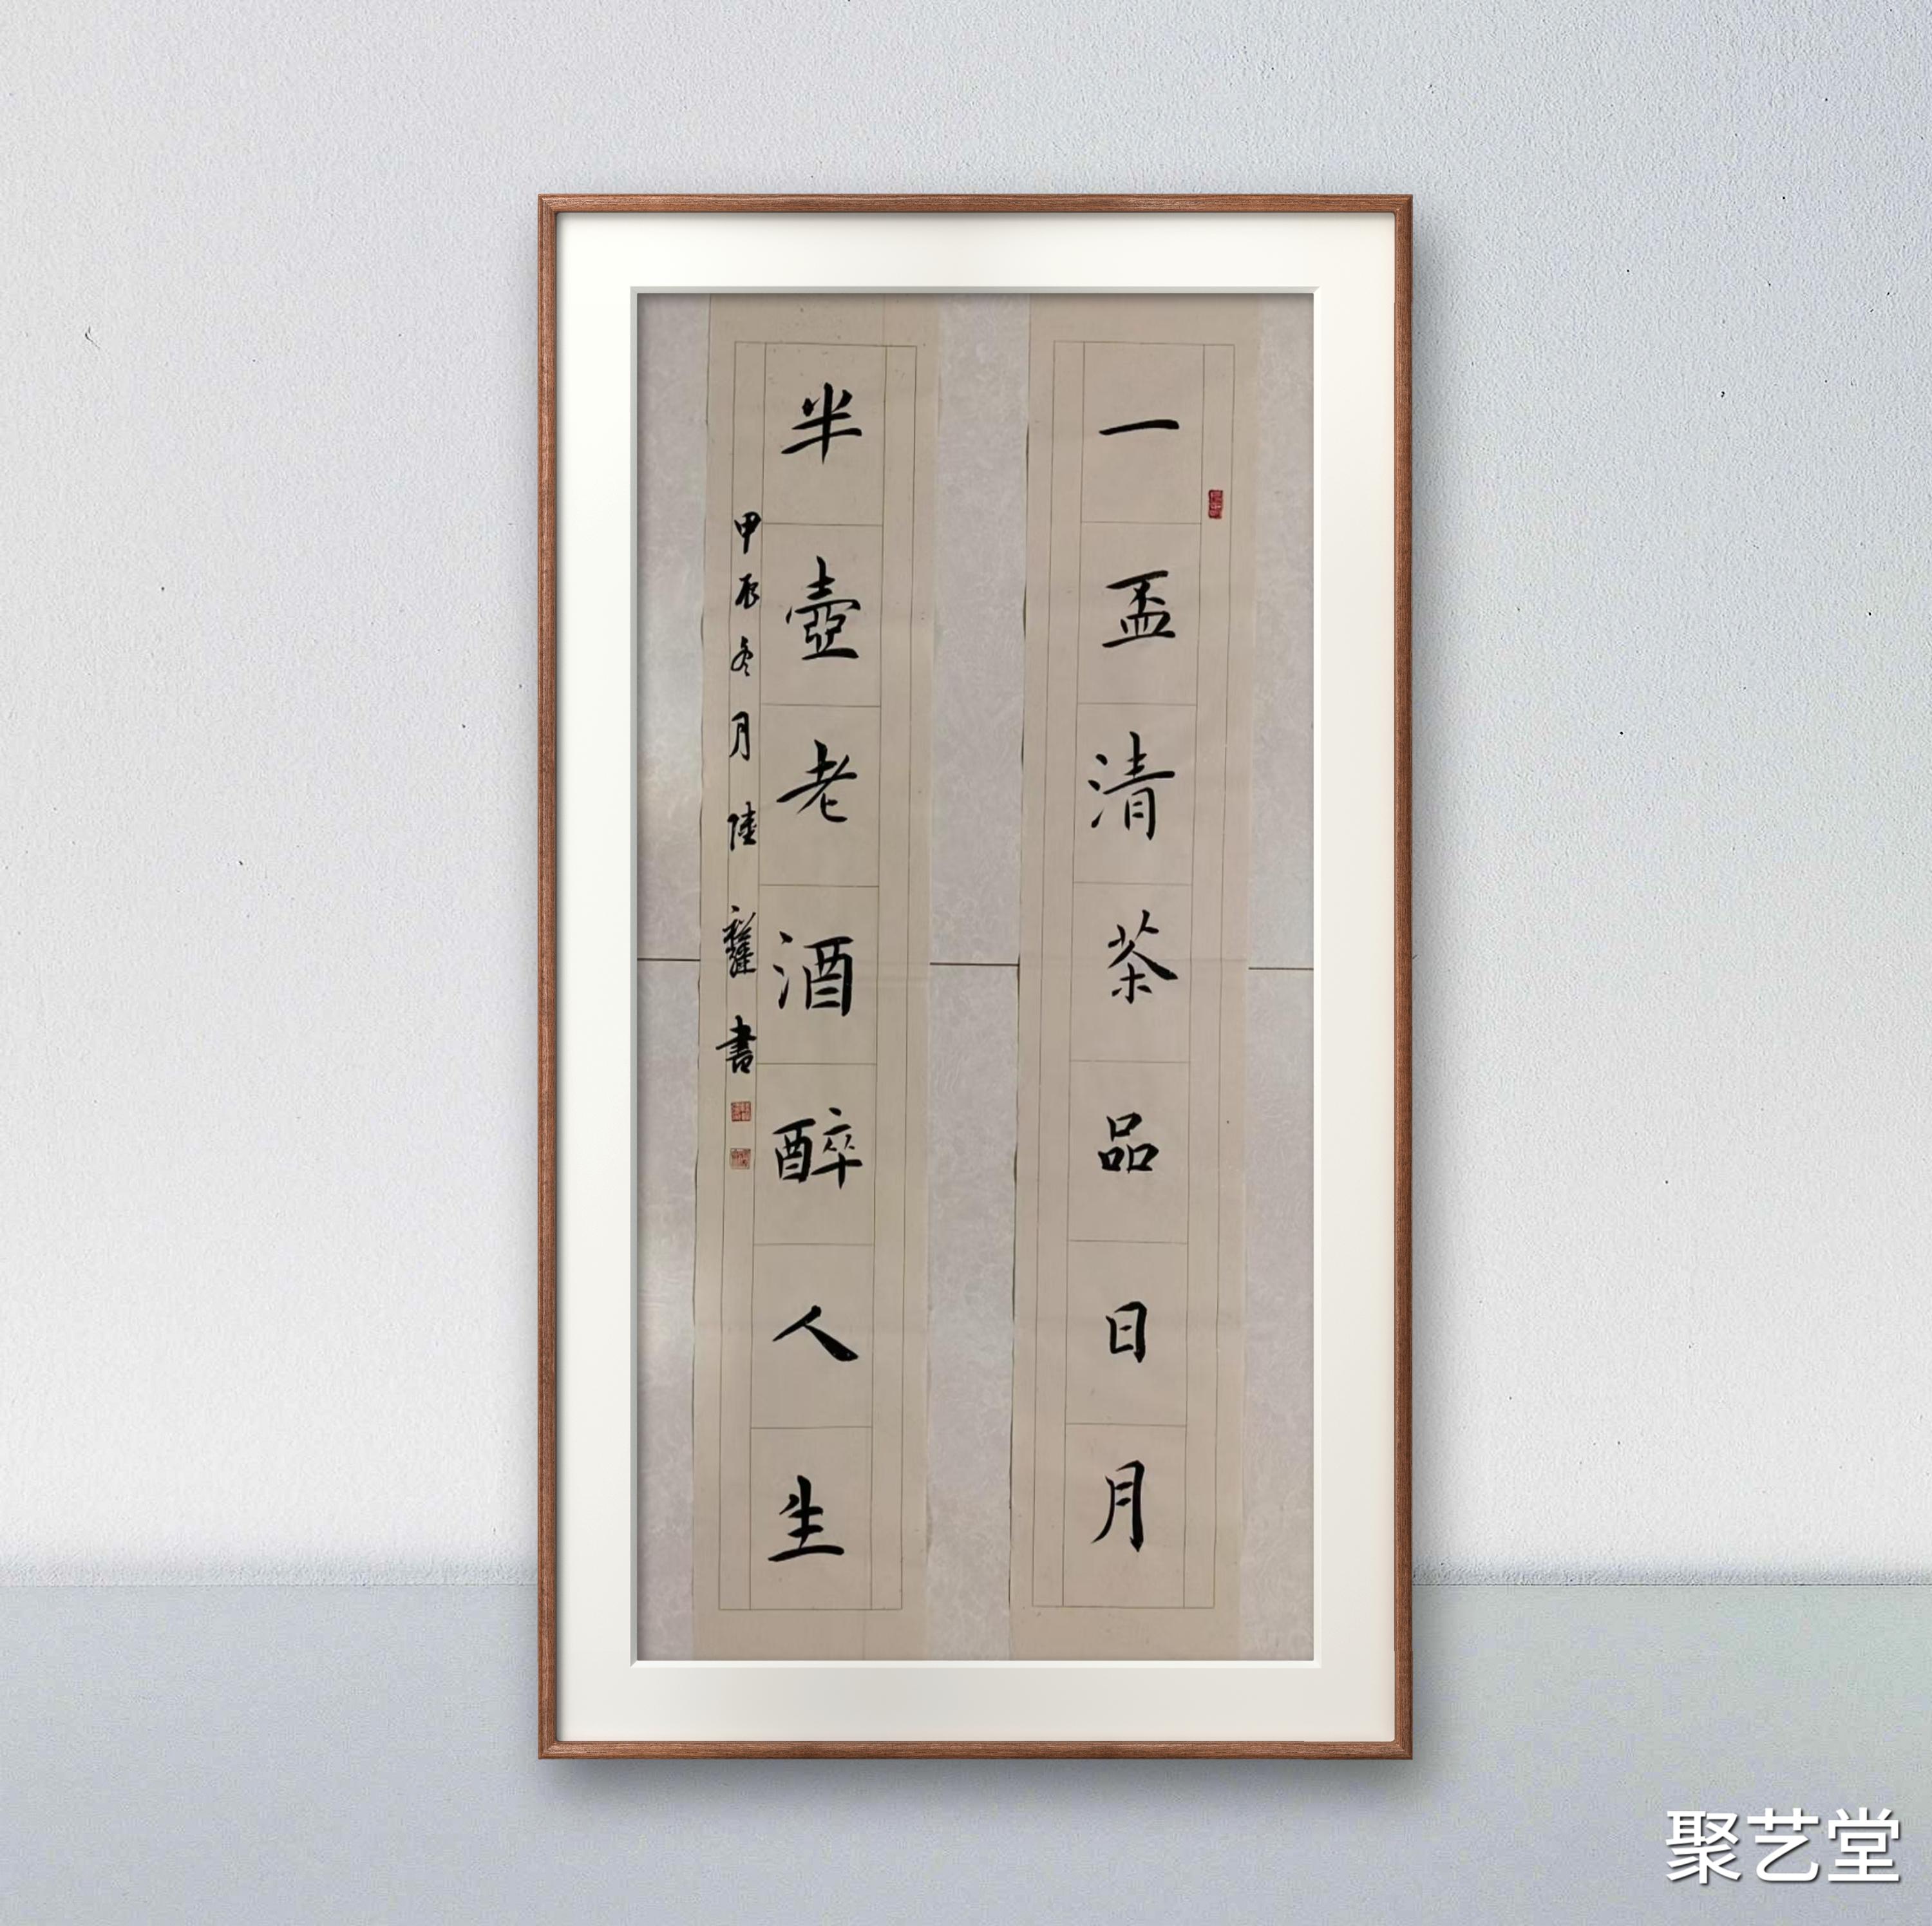 一盃清茶品日月
半壺老酒醉人生
甲辰冬月陸 書
聚艺堂